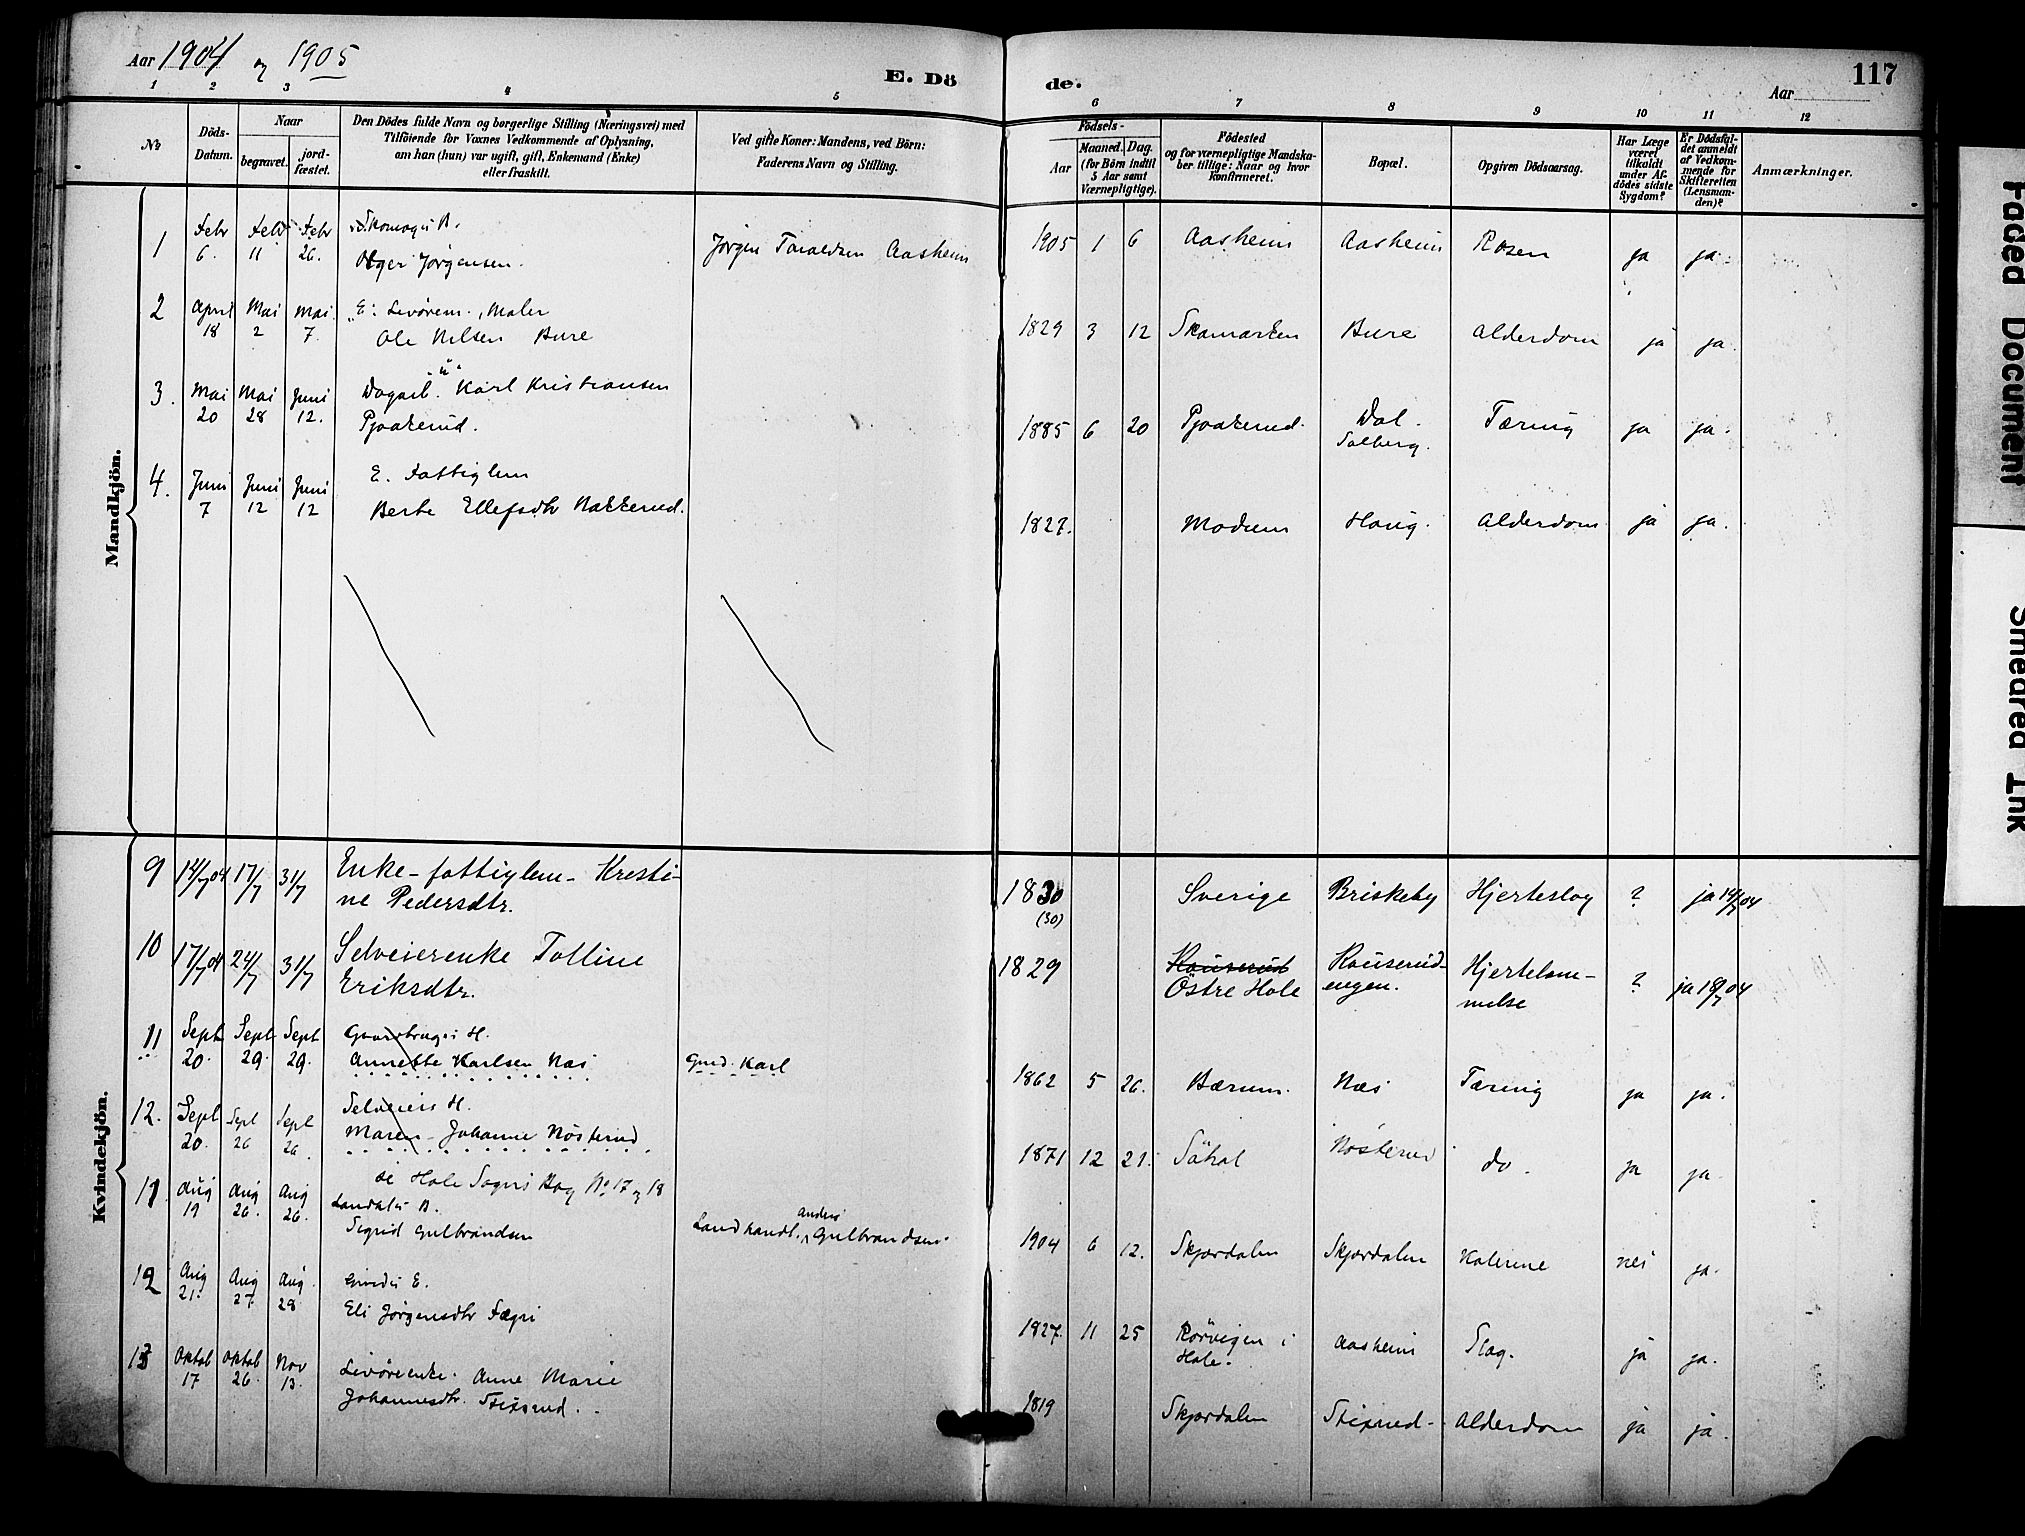 Aar 1904 og 1905
E. Dö de.
Aar
117
1 2 3 4 5 6 7 8 9 10 11 12
No
Döds-Datum.
Naar
begravet.
jord-fæstet.
Den Dödes fulde Navn og borgerlige Stilling (Næringsvei) med
Tilföiende for Voxnes Vedkommende af Oplysning,
om han (hun) var ugift, gift, Enkemand (Enke)
eller fraskilt.
Ved gifte Koner: Mandens, ved Börn:
Faderens Navn og Stilling.
Födsels-
Aar
Maaned. Dag.
(for Börn indtil 5 Aar samt Værnepligtige).
Födested
og for værnepligtige Mandskaber tillige: Naar og hvor konfirmeret.
Bopæl.
Opgiven Dödsaarsag.
Har Læge været tilkaldt under Afdödes sidste Sygdom?
Er Dödsfaldet anmeldt af Vedkommende for Skifteretten (Lensmanden)?
Anmærkninger.
Mandkjön.
1 Febr 6. Febr 11 Febr 26. B.
Jørgensen. Jørgen Taraldsen Aasheim 1905 1 6 Aasheim Aasheim Rosen ja ja.
2 April 18 Mai 2 Mai 7. E: Maler
Ole Nilsen Bure 1829 3 12 Skamarken Bure Alderdom ja ja.
3. Mai 20 Mai 28 Juni 12. Dagarb. Karl Kristiansen
Pjaakerud. 1885 6 20 Pjaakerud. Dal. Solberg. Tæring ja ja.
4. Juni 7 Juni 12 Juni 12 E. Fattiglem
Berte Ellefsdtr Nakkerud. 1827. Modum Haug. Alderdom ja ja.
Kvindekjön.
9 14/7 04 17/7 31/7 Enke-fattiglem- Kresti-
ne Pedersdtr. 1830 (30) Sverige Briskeby Hjerteslag ? ja 14/7 04
10 17/7 04 24/7 31/7 Selveierenke Tolline
Eriksdtr. 1829 Rauserud Östre Hole Rauserud-engen. Hjertelam-melse ? ja 18/7 04
11 Sept 20. Sept 29. Sept 29. Gaardbruger H.
Annette Karlsen Næs Gmd. Karl 1862 5 26. Bærum. Næs Tæring ja ja.
12. Sept 20. Sept 26 Sept 26. Selveiers H.
Maren Johanne Nøsterud 1871 12 21. Nøsterud do. ja ja.
se Hole Sogns Bog No 17 og 18
11. Aug 19 Aug 26. Aug 26. B.
Sigrid Gulbrandsen Landhandl. Anders Gulbrandsen. 1904 6 12. Skjærdalen Skjærdalen Kolerine nei ja.
12 Aug 21. Aug 27. Aug. 28 E.
Eli Jørgensdtr 1827. 11 25 Rørvigen i Hole. Aasheim Slag. ja ja.
13 Oktob 17 Oktob 26. Nov 13. Anne Marie
Johannesdtr. Stixrud. 1819 Skjærdalen Stixrud Alderdom ja ja.
Faded Document
Smeared Ink